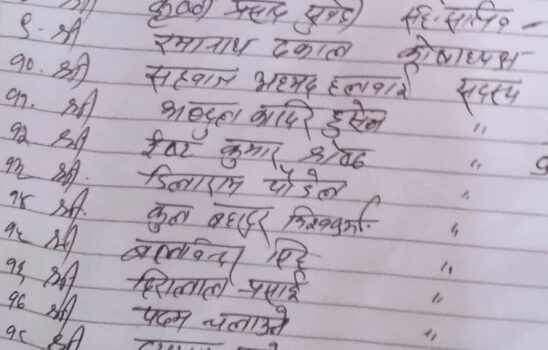 कृष्ण प्रसाद सह-सचिव -
९. श्री रमानाथ ढकाल कोषाध्यक्ष
१०. श्री सहवान अहमद हलवाई सदस्य
११. श्री अब्दुल कादिर हुसेन "
१२ श्री ईश्वर कुमार श्रेष्ठ "
१३ श्री. डिलाराम पौडेल "
१४ श्री. कुल बहादुर "
१५ श्री सिंह "
१६ श्री हिरालाल प्रसाई "
१७ श्री पदम चलाउने "
१८ श्री